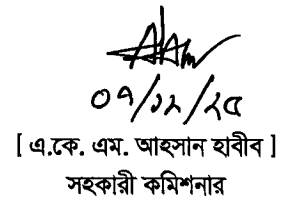 ০৭/১২/২৫
[ এ.কে. এম. আহসান হাবীব ]
সহকারী কমিশনার